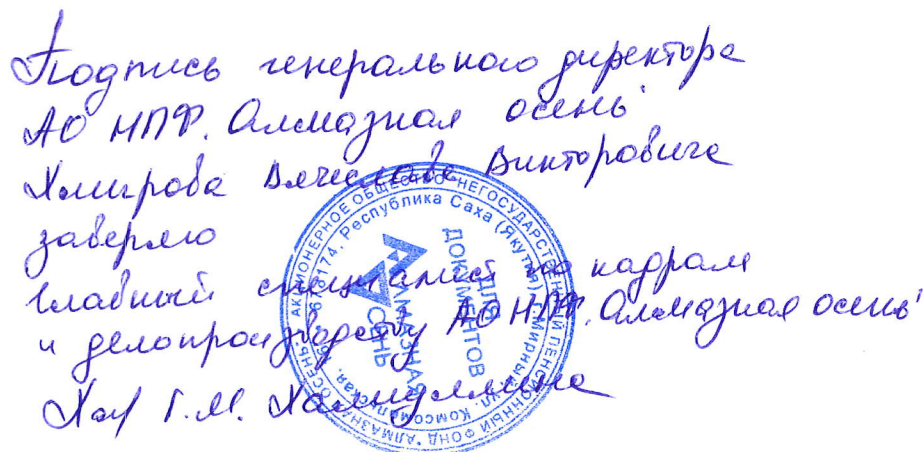 Подпись генерального директора
АО НПФ "Алмазная осень"
Хмырова Вячеслава Викторовича
заверяю
Главный специалист по кадрам
и делопроизводству АО НПФ "Алмазная осень"
Г.М. Хамидуллина
АКЦИОНЕРНОЕ ОБЩЕСТВО "НЕГОСУДАРСТВЕННЫЙ ПЕНСИОННЫЙ ФОНД "АЛМАЗНАЯ ОСЕНЬ"
678174, Республика Саха (Якутия), г. Мирный, ул. Комсомольская,
АЛМАЗНАЯ
ОСЕНЬ
ДЛЯ
ДОКУМЕНТОВ